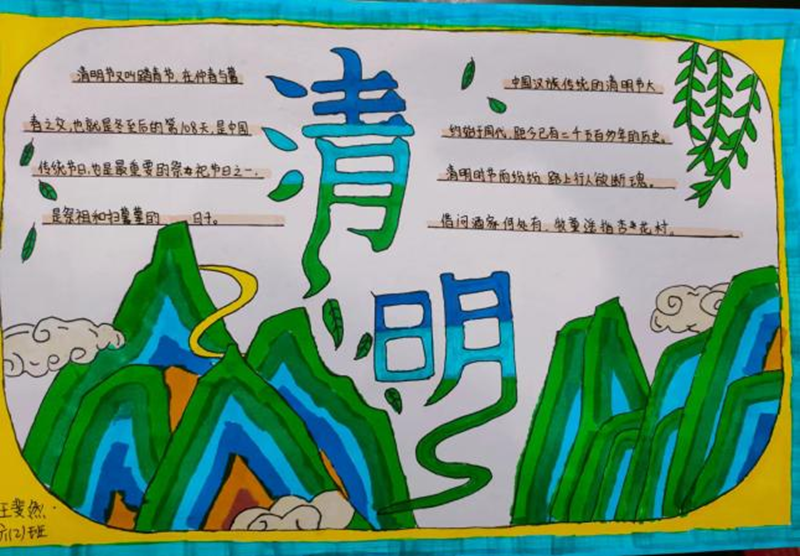 清明
清明节又叫踏青节，在仲春与暮
春之交，也就是冬至后的第108天，是中国
传统节日，也是最重要的祭祀节日之一，
是祭祖和扫墓的 日子。
中国汉族传统的清明节大
约始于周代，距今已有二千五百多年的历史。
清明时节雨纷纷，路上行人欲断魂。
借问酒家何处有，牧童遥指杏花村。
王斐然
(2)班